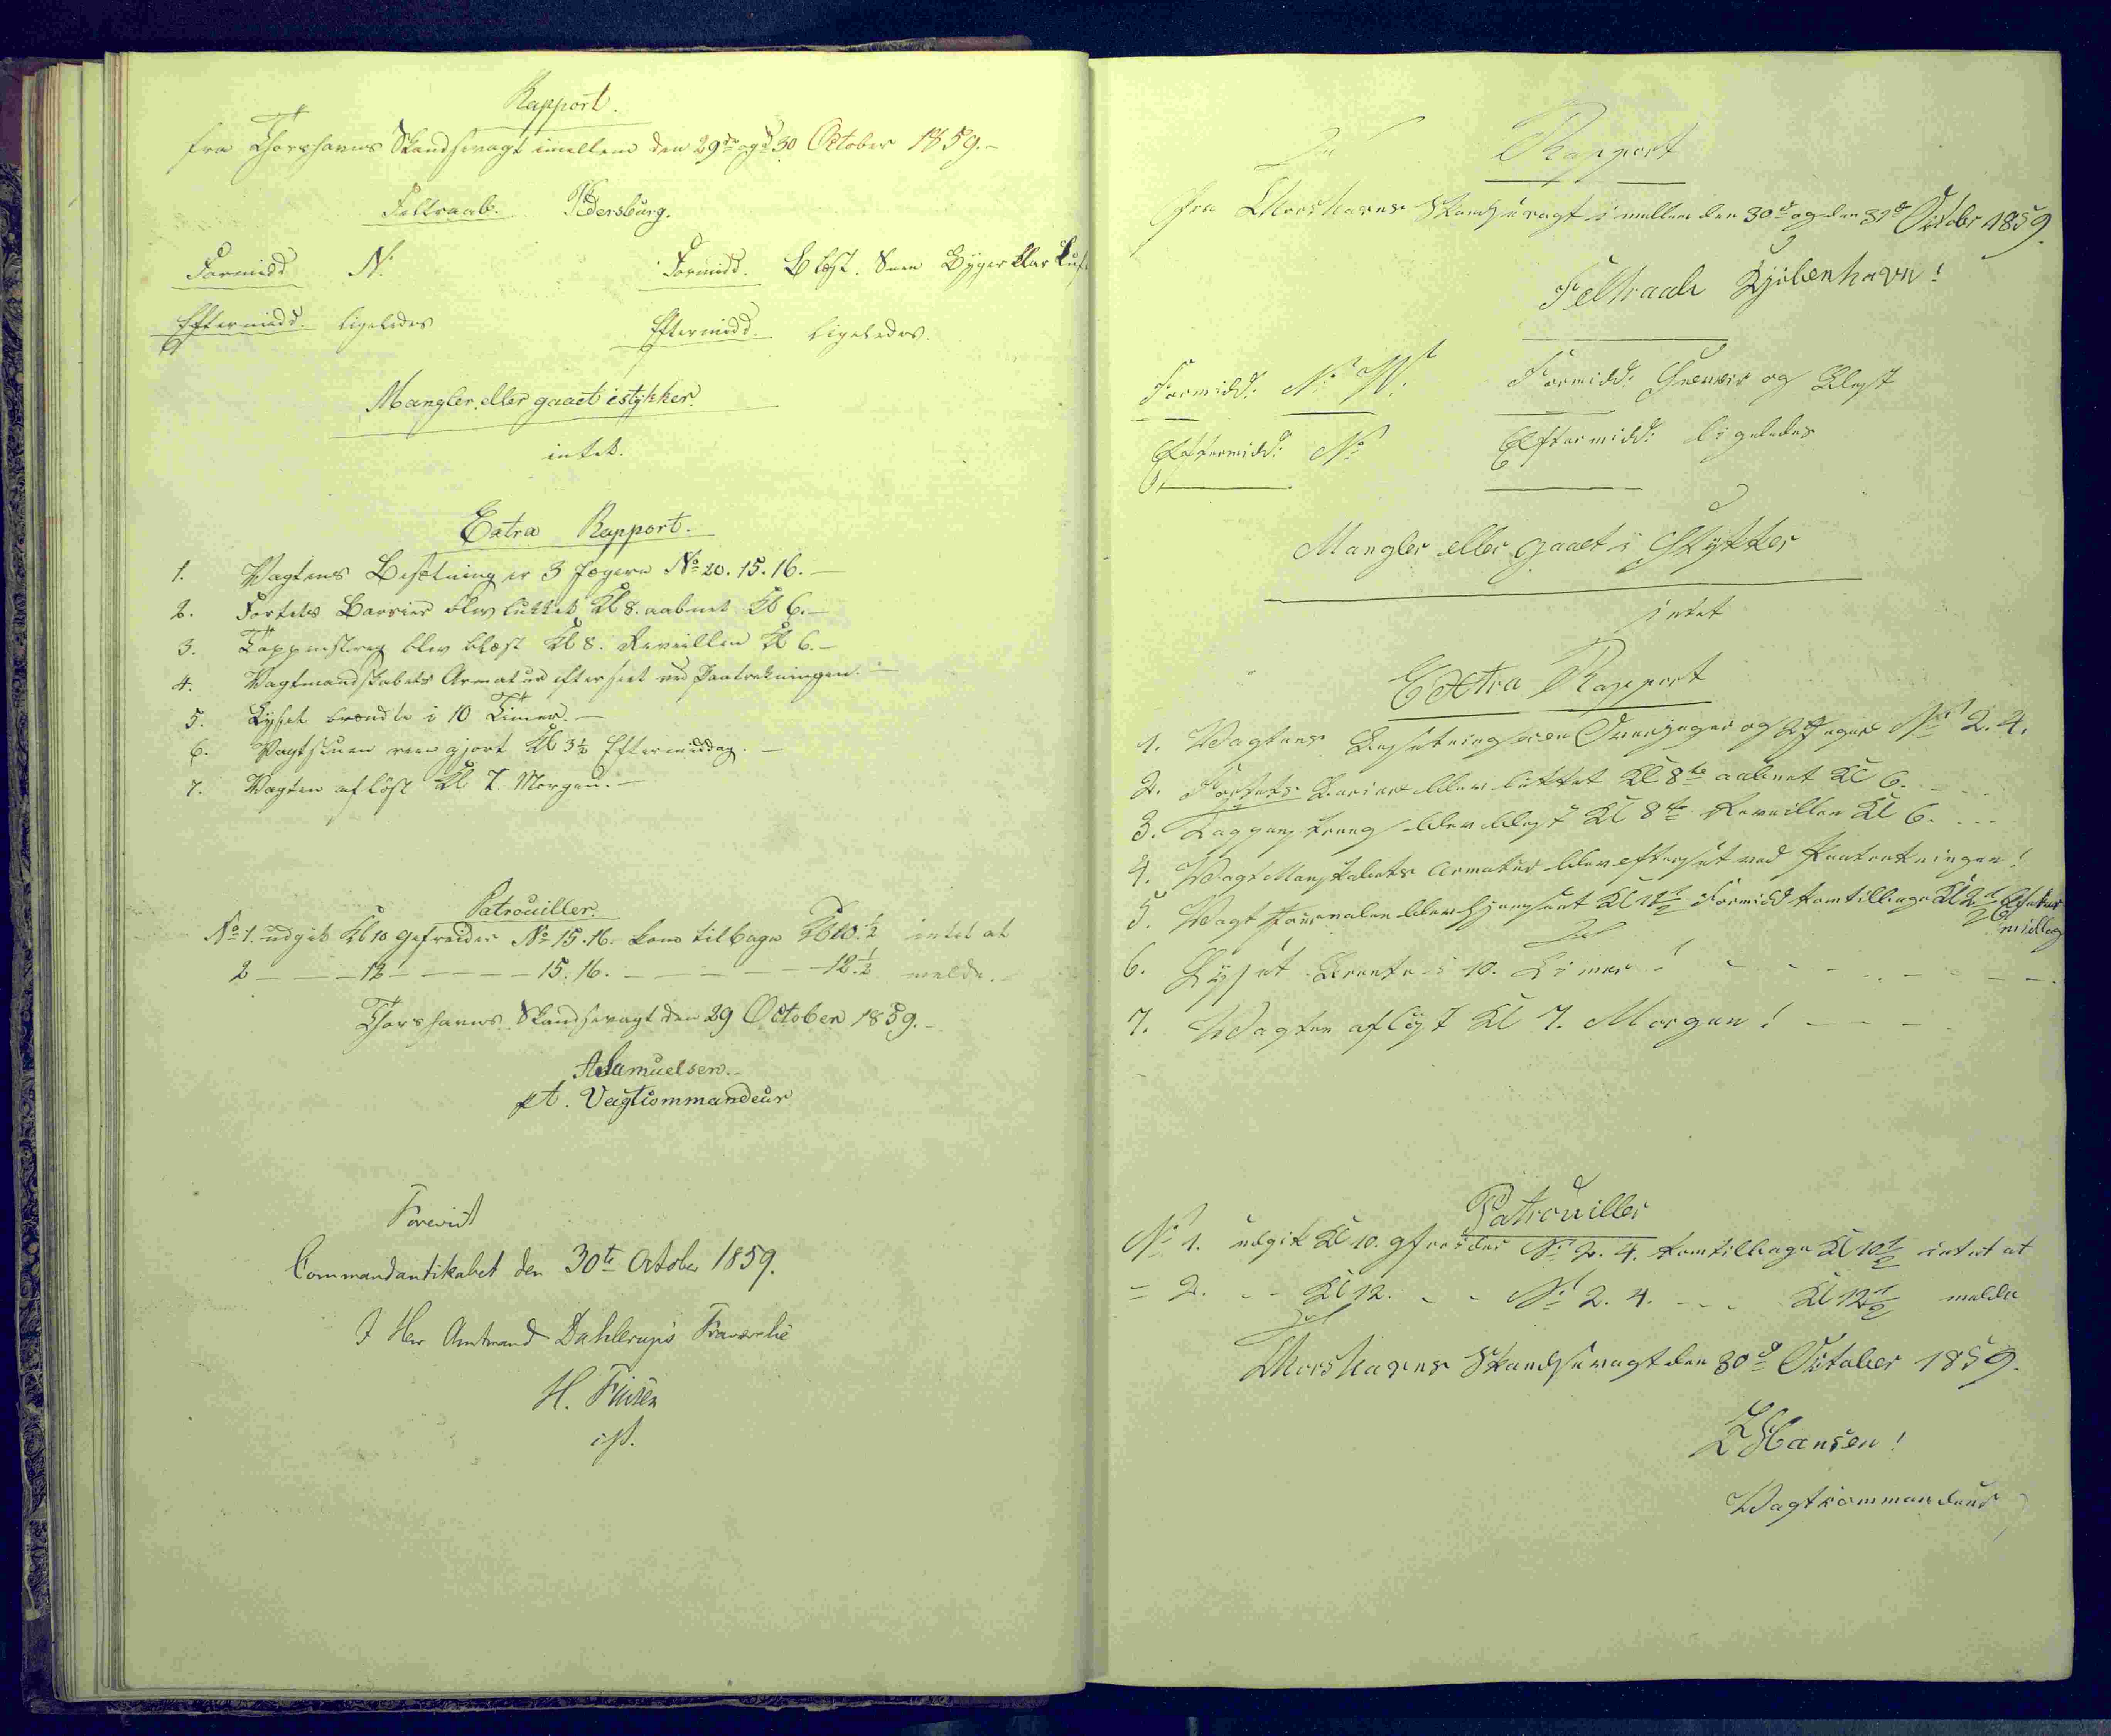 Rapport.
fra Thorshavns Skandsevagt imellem den 29de og d 30 October 1859.-
Feltraab. Pedersburg.
Formidd. N. Formidd. Blæst. Snee Byger klar Luft
Eftermidd. ligeledes Eftermidd. ligeledes.
Mangler eller gaaet istykker.
intet.
Extra Rapport.
1. Vagtens Besætning er 3 Jægere No 20. 15. 16.-
2. Fortets Barrier blev lukket Kl 8. aabnet Kl 6.-
3. Tappenstreg blev blæst Kl 8. Reveillen Kl 6.-
4. Vagtmandskabets Armatur efterseet ved Paatrekningen.-
5. Lyset brændte i 10 Timer.-
6. Vagtstuen reengjort Kl 3½ Eftermiddag.-
7. Vagten afløst Kl 7. Morgen.-
Patrouiller.
No 1. udgik Kl 10 Gefreider No 15. 16. kom tilbage Kl 10.½ intet at
2 - - 12 - - - - 15. 16. - - - - - 12.½ melde.
Thorshavns Skandsevagt den 29 October 1859.-
Samuelsen.-
pt. Vagtcommandeur
Forevist
Commandantskabet den 30te October 1859.
I Herr Amtmand Dahlerups Fraværelse
H. Finsen
cst.
Rapport
Fra Thorshavns Skandsevagt imellem den 30te og den 31te October 1859.
Feltraab Kjøbenhavn!
Formidd: No W. Formidd: Sneeveir og Blæst
Eftermidd: No Eftermidd: ligeledes
Mangler eller gaaet i Stykker
intet
Extra Rapport
1. Vagtens Besetning er en Overjæger og 2 Jægere No 2. 4.
2. Fortets Barier blev lukket Kl 8te aabnet Kl 6. - - -
3. Tappenstreng blev blæst Kl 8te Reveillen Kl 6. - - -
4. Vagt Manskabets Armatur blev efterset ved Paatrekningen!
5. Vagt Journalen blev hjemsent Kl 11½ Formidd kom tilbage Kl 2½ Efter
middag
6. Lyset Brente i 10. Timer! - - - - - -
7. Vagten afløst Kl 7. Morgen! - - -
Patrouiller
No 1. udgik Kl 10. gefreider No 2. 4. kom tilbage Kl 10½ intet at
= 2. - - Kl 12. - - No 2. 4. - - - Kl 12½ melde
Thorshavns Skandsevagt den 30te October 1859.
Hansen!
Vagtkommandeur